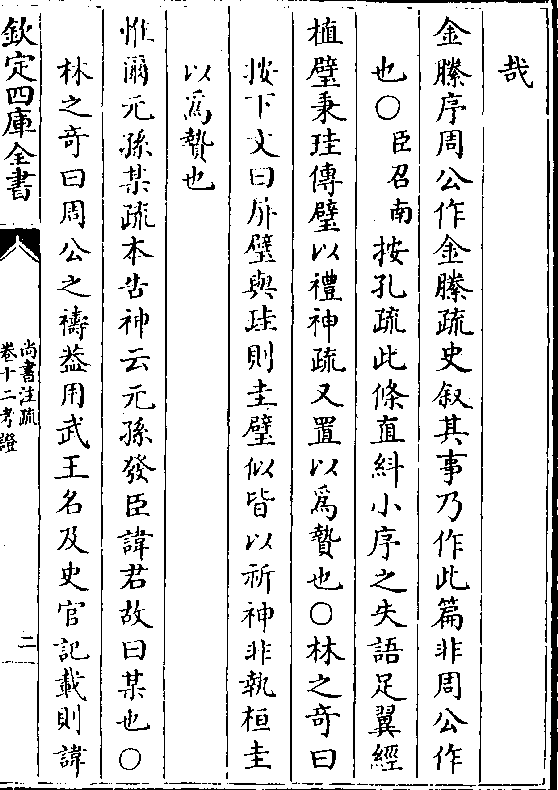 哉
金縢序周公作金縢疏史叙其事乃作此篇非周公作
也○臣召南按孔疏此條直糾小序之失語足翼經
植璧秉珪傳璧以禮神疏又置以爲贄也○林之奇曰
按下文曰屏璧與珪則圭璧似皆以祈神非執桓圭
以爲贄也
惟爾元孫某疏本告神云元孫發臣諱君故曰某也○
林之奇曰周公之禱蓋用武王名及史官記載則諱
欽定四庫全書
尚書注疏
卷十二考證
二